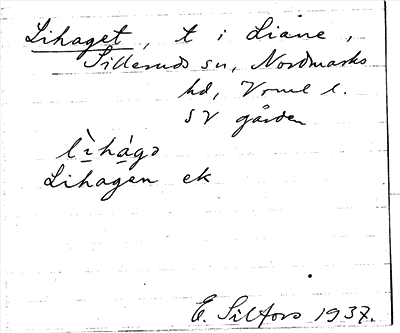 Lihaget, t i Liane,
Sillerud sn, Nordmarks
hd, Vrml l.
SV gården
lìhágə
Lihagen ek
E. Silfors 1937.